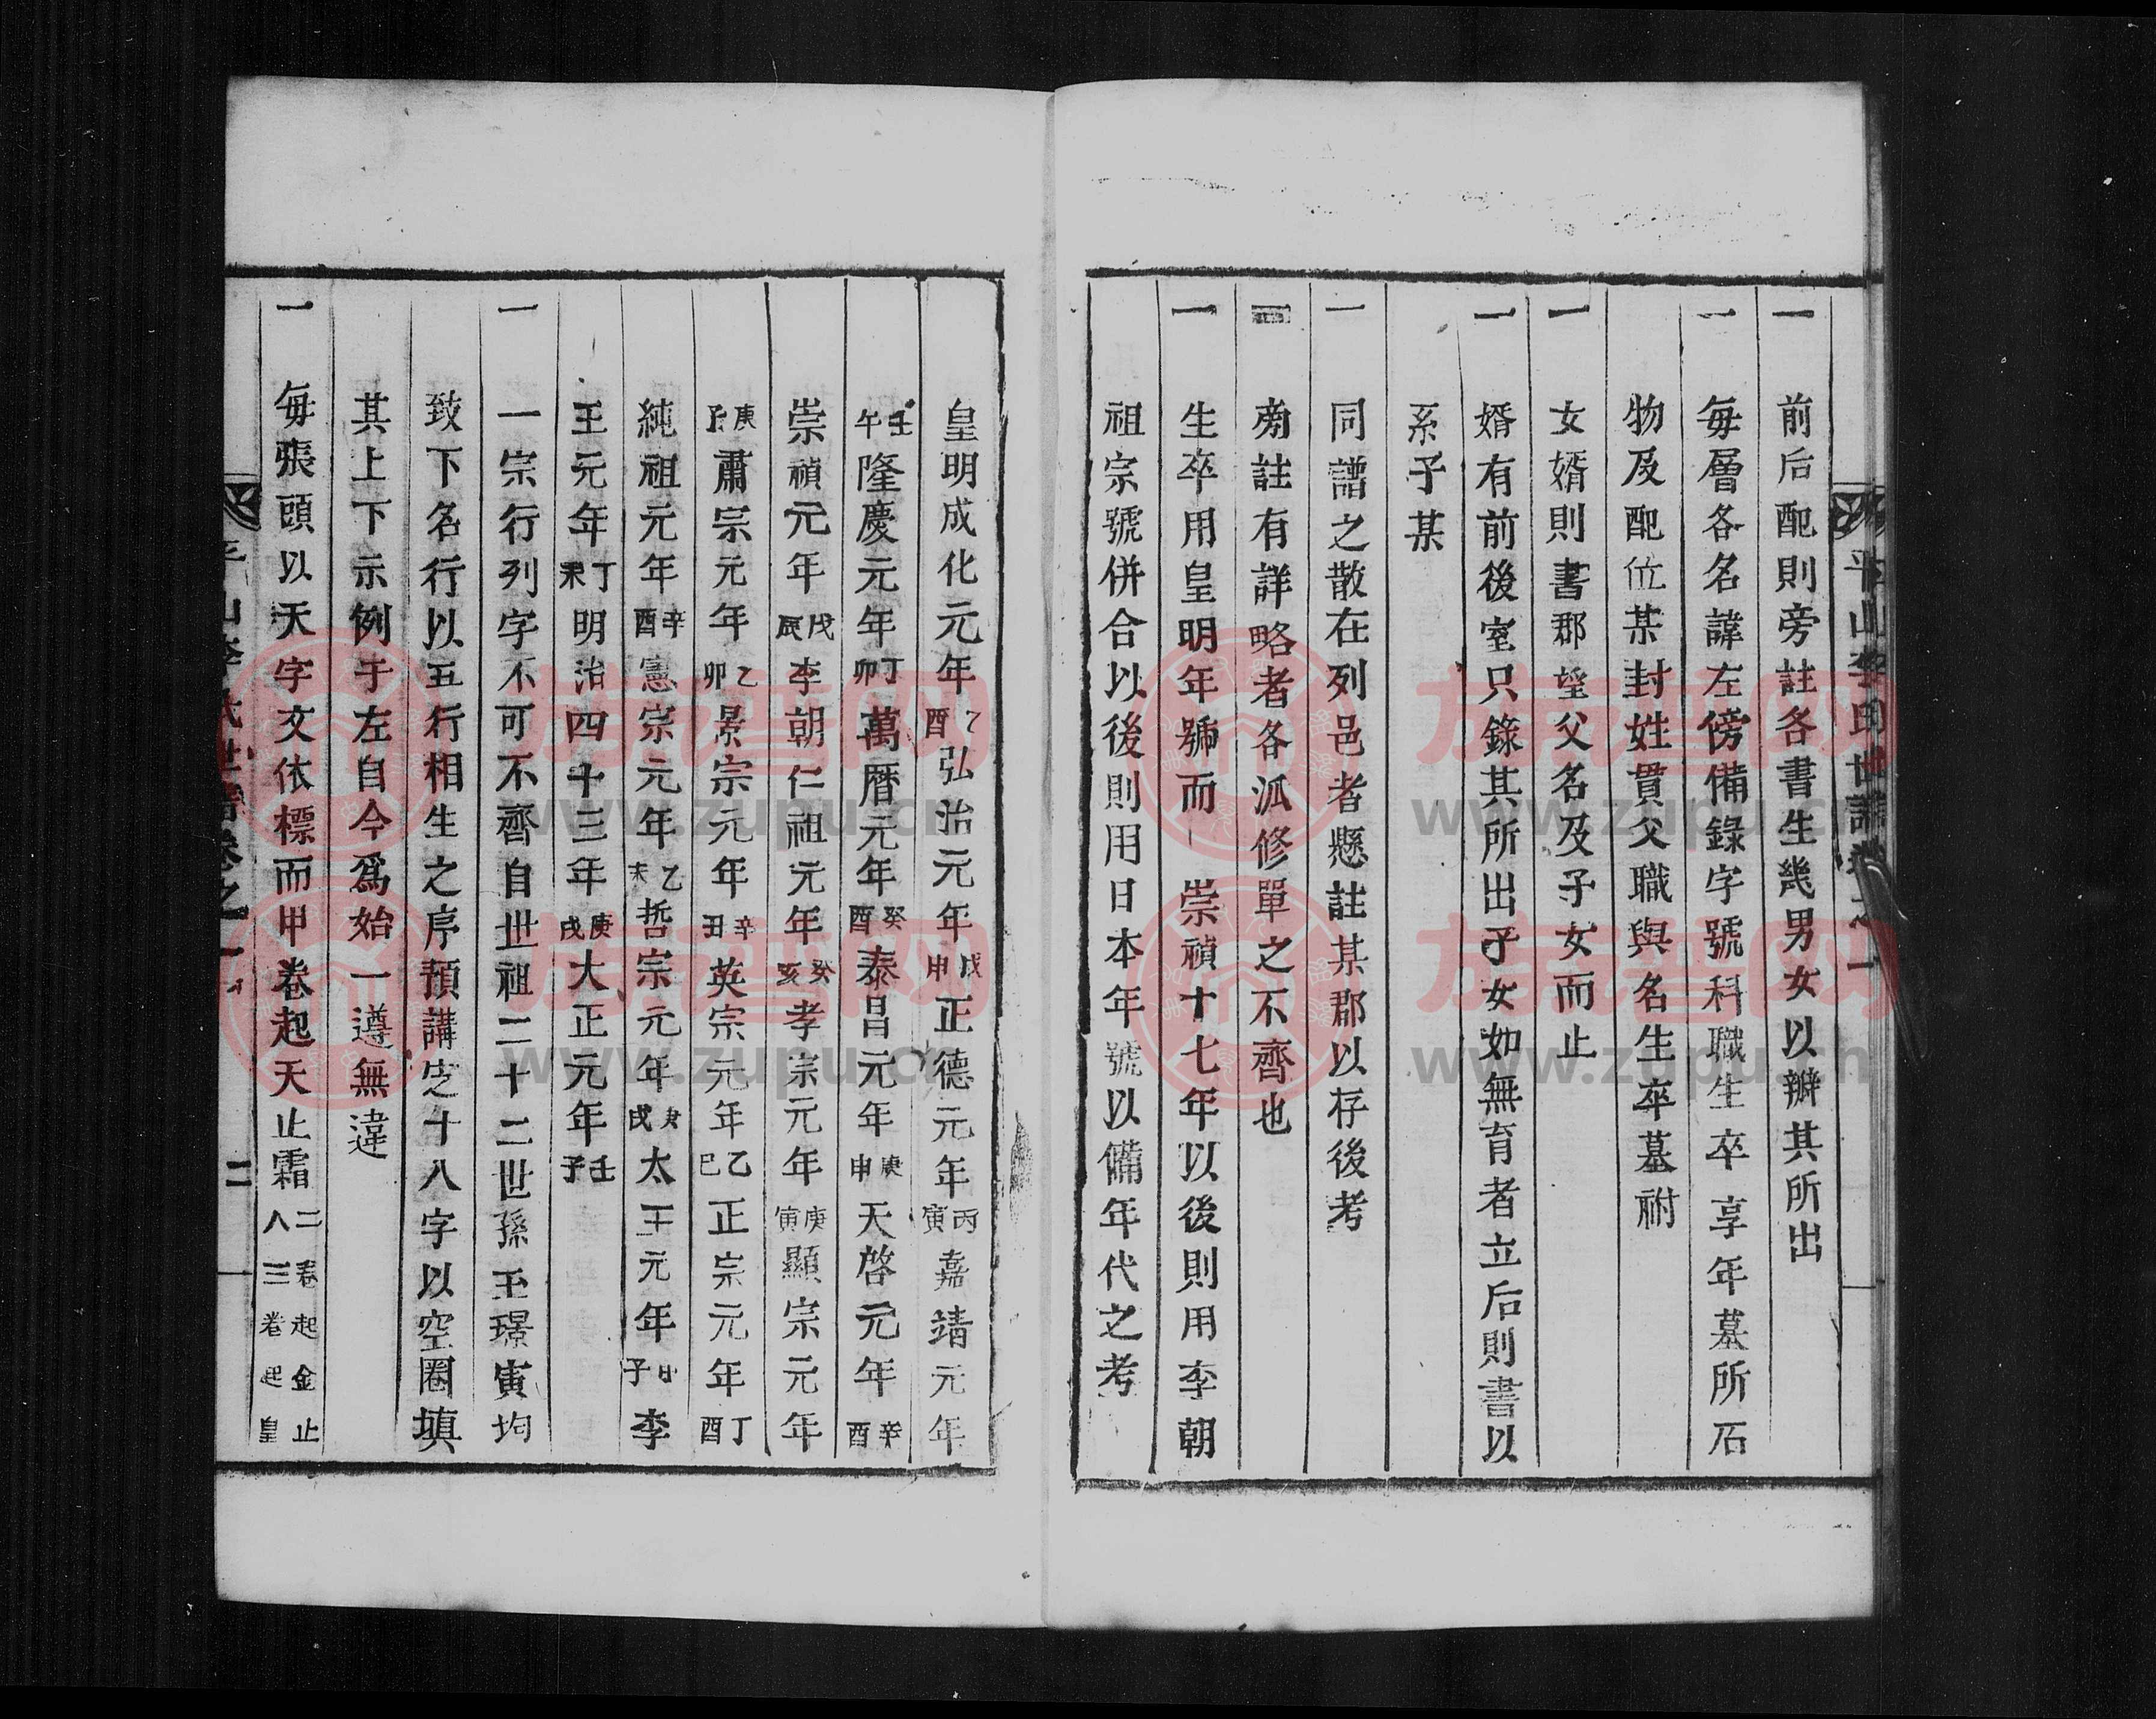 平山李氏世譜卷之一
一 前后配則旁註各書生幾男女以辨其所出
一 每層各名諱左傍備錄字號科職生卒享年墓所石
物及配位某封姓貫父職與名生卒墓祔
一 女婿則書郡望父名及子女而止
一 婿有前後室只錄其所出子女如無育者立后則書以
系子某
一 同譜之散在列邑者懸註某郡以存後考
一 旁註有詳略者各派修單之不齊也
一 生卒用皇明年號而 崇禎十七年以後則用李朝
祖宗號併合以後則用日本年號以備年代之考
皇明成化元年乙酉弘治元年戊申正德元年丙寅嘉靖元年
壬午隆慶元年丁卯萬曆元年癸酉泰昌元年庚申天啓元年辛酉
崇禎元年戊辰李朝仁祖元年癸亥孝宗元年庚寅顯宗元年
庚子肅宗元年乙卯景宗元年辛丑英宗元年乙巳正宗元年丁酉
純祖元年辛酉憲宗元年乙未哲宗元年庚戌太王元年甲子李
王元年丁未明治四十三年庚戌大正元年壬子
一 一宗行列字不可不齊自世祖二十二世孫王璟寅均
致下名行以五行相生之序預講定十八字以空圈填
其上下示例于左自今爲始一遵無違
一 每張頭以天字文依標而甲卷起天止霜二卷起金止
八三卷起皇
平山李氏世譜卷之一
二
族谱网
www.zupu.cn
族谱网
www.zupu.cn
族谱网
www.zupu.cn
族谱网
www.zupu.cn